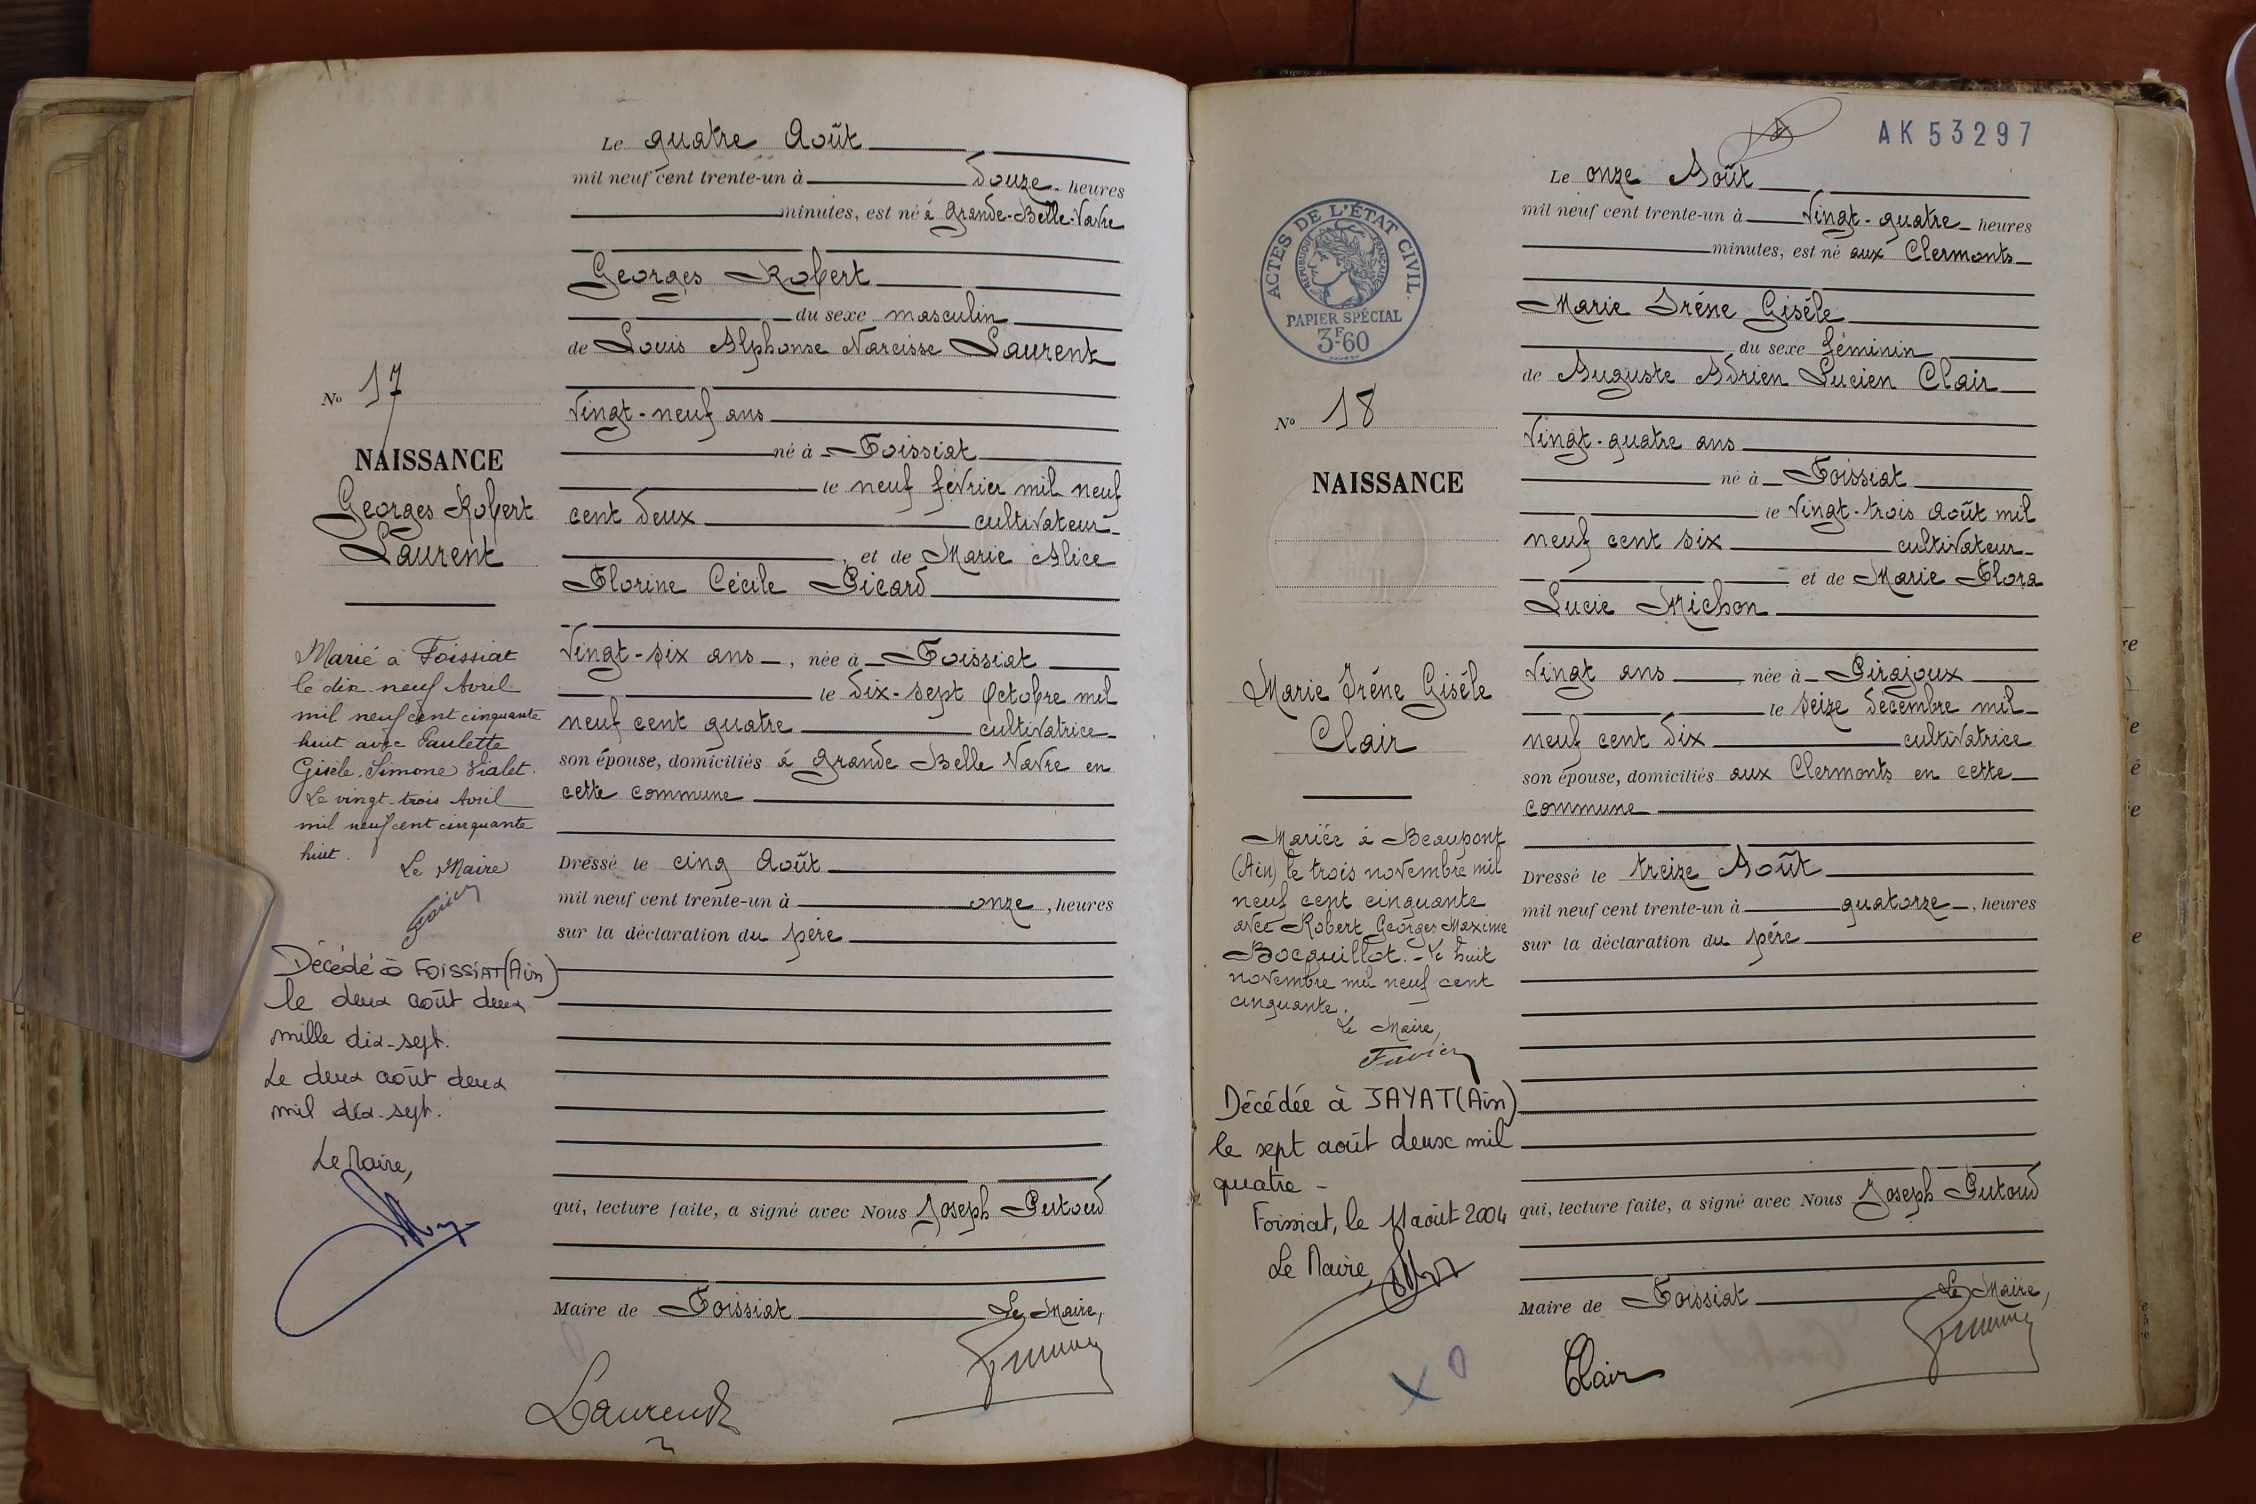 Le quatre Août
mil neuf cent trente-un à douze heures
minutes, est né à Grande-Belle-Vavre
Georges Robert
du sexe masculin
de Louis Alphonse Narcisse Laurent
Vingt-neuf ans
né à Foissiat
le neuf février mil neuf
cent deux cultivateur
et de Marie Alice
Florine Cécile Picard
Vingt-six ans, née à Foissiat
le dix-sept Octobre mil
neuf cent quatre cultivatrice
son épouse, domiciliés à Grande Belle Vavre en
cette commune
Dressé le cinq Août
mil neuf cent trente-un à onze, heures
sur la déclaration du père
qui, lecture faite, a signé avec Nous Joseph Putoud
Maire de Foissiat Le Maire,
Laurent
No 17
NAISSANCE
Georges Robert
Laurent
Marié à Foissiat
le dix neuf Avril
mil neuf cent cinquante
huit avec Paulette
Gisèle Simone Vialet.
Le vingt-trois Avril
mil neuf cent cinquante
huit.
Le Maire
Favier
Décédé à FOISSIAT (Ain)
le deux août deux
mille dix-sept.
Le deux août deux
mil dix-sept.
Le Maire,
AK53297
Le onze Août
mil neuf cent trente-un à Vingt-quatre heures
minutes, est né aux Clermonts
Marie Irène Gisèle
du sexe féminin
de Auguste Adrien Lucien Clair
Vingt-quatre ans
né à Foissiat
le Vingt-trois août mil
neuf cent six cultivateur
et de Marie Flora
Lucie Michon
Vingt ans née à Pirajoux
le seize décembre mil
neuf cent dix cultivatrice
son épouse, domiciliés aux Clermonts en cette
commune
Dressé le treize Août
mil neuf cent trente-un à quatorze, heures
sur la déclaration du père
qui, lecture faite, a signé avec Nous Joseph Putoud
Maire de Foissiat Le Maire,
Clair
ACTES DE L'ÉTAT CIVIL.
RÉPUBLIQUE FRANÇAISE
PAPIER SPÉCIAL
3F60
No 18
NAISSANCE
Marie Irène Gisèle
Clair
Mariée à Beaupont
(Ain) le trois novembre mil
neuf cent cinquante
avec Robert Georges Maxime
Bocquillot. - Le huit
novembre mil neuf cent
cinquante.
Le Maire,
Favier
Décédée à JAYAT (Ain)
le sept août deux mil
quatre -
Foissiat, le 11 août 2004
Le Maire,